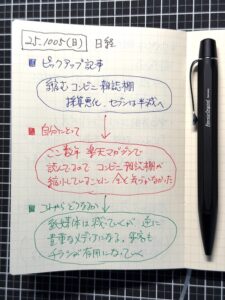 25.1005(日) 日経
ピックアップ記事
縮む コンビニ雑誌棚
採算悪化、セブンは半減へ
自分にとって
ここ数年 楽天マガジンで
読んでるので コンビニ雑誌棚が
縮小していることに 今まで気づかなかった
これからどうなるか
紙媒体は減っていくが 逆に
貴重なメディアになる。案外も
チラシが有用になっていく